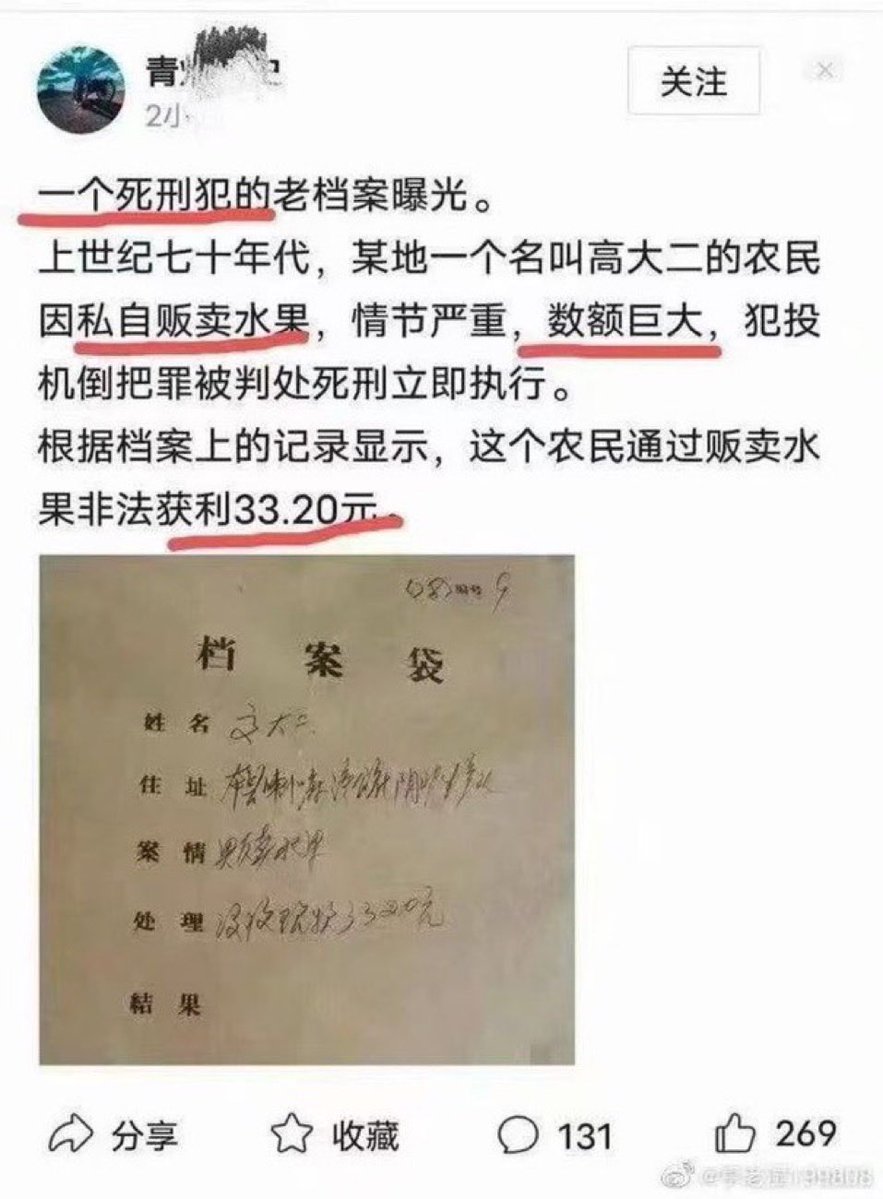 青
2小
关注
一个死刑犯的老档案曝光。
上世纪七十年代，某地一个名叫高大二的农民
因私自贩卖水果，情节严重，数额巨大，犯投
机倒把罪被判处死刑立即执行。
根据档案上的记录显示，这个农民通过贩卖水
果非法获利33.20元。
编号 9
档 案 袋
姓 名 大二
住 址
案 情 贩卖水果
处 理 没收现款33.20元
結 果
分享
收藏
131
269